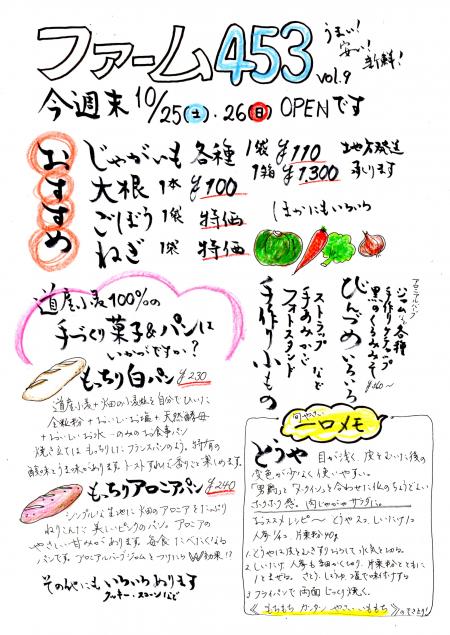 ファーム453
うまい!
安い!
新鮮!
vol.9
今週末10/25(土)・26(日)OPENです
おすすめ
じゃがいも 各種 1袋 ¥110
1箱 ¥1300
地方発送
承ります
大根 1本 ¥100
ごぼう 1袋 特価
ねぎ 1袋 特価
ほかにもいろいろ
アロニアバーブ
ジャム各種
手作りラタトゥイユ
黒のくるみみそ
びんづめいろいろ
ストラップ など
手あみかご
フォトスタンド
手作り小もの
道産小麦100%の
手づくり菓子&パンは
いかがですか?
もっちり白パン ¥230
道産小麦+畑の小麦粒を自分でひいた
全粒粉+おいしいお塩+天然酵母
+おいしいお水 のみのお食事パン
焼き立てはもっちりしたフランスパンのよう。特有の
酸味とうま味があります。トーストすれば香りよく楽しめます。
もっちりアロニアパン ¥240
シンプルな生地に畑のアロニアをたっぷり
ねりこんだ美しいピンクのパン。アロニアの
やさしい甘みがあります。毎食たべたくなる
パンです。アロニアバーブジャムとつけたらW効果!?
その他にもいろいろあります
クッキー・スコーンなど
旬やさい
一口メモ
とうや
目が浅く、皮をむいた後の
変色が少なく使いやすい。
「男爵」と「メークイン」を合わせた様なちょうどよい
ホクホク感。肉じゃがやサラダに。
おススメレシピ〜 とうや2コ しいたけ1コ
人参1/2コ 片栗粉40g
1. とうやは皮をむきすりおろして水気をとる。
2. しいたけ、人参も細かく切り、片栗粉とともに
1とまぜる。さとう、しょうゆ、塩で味付けする
3 フライパンで両面じっくり焼く。
《もちもち カンタン やさいいももち》のできあがり!